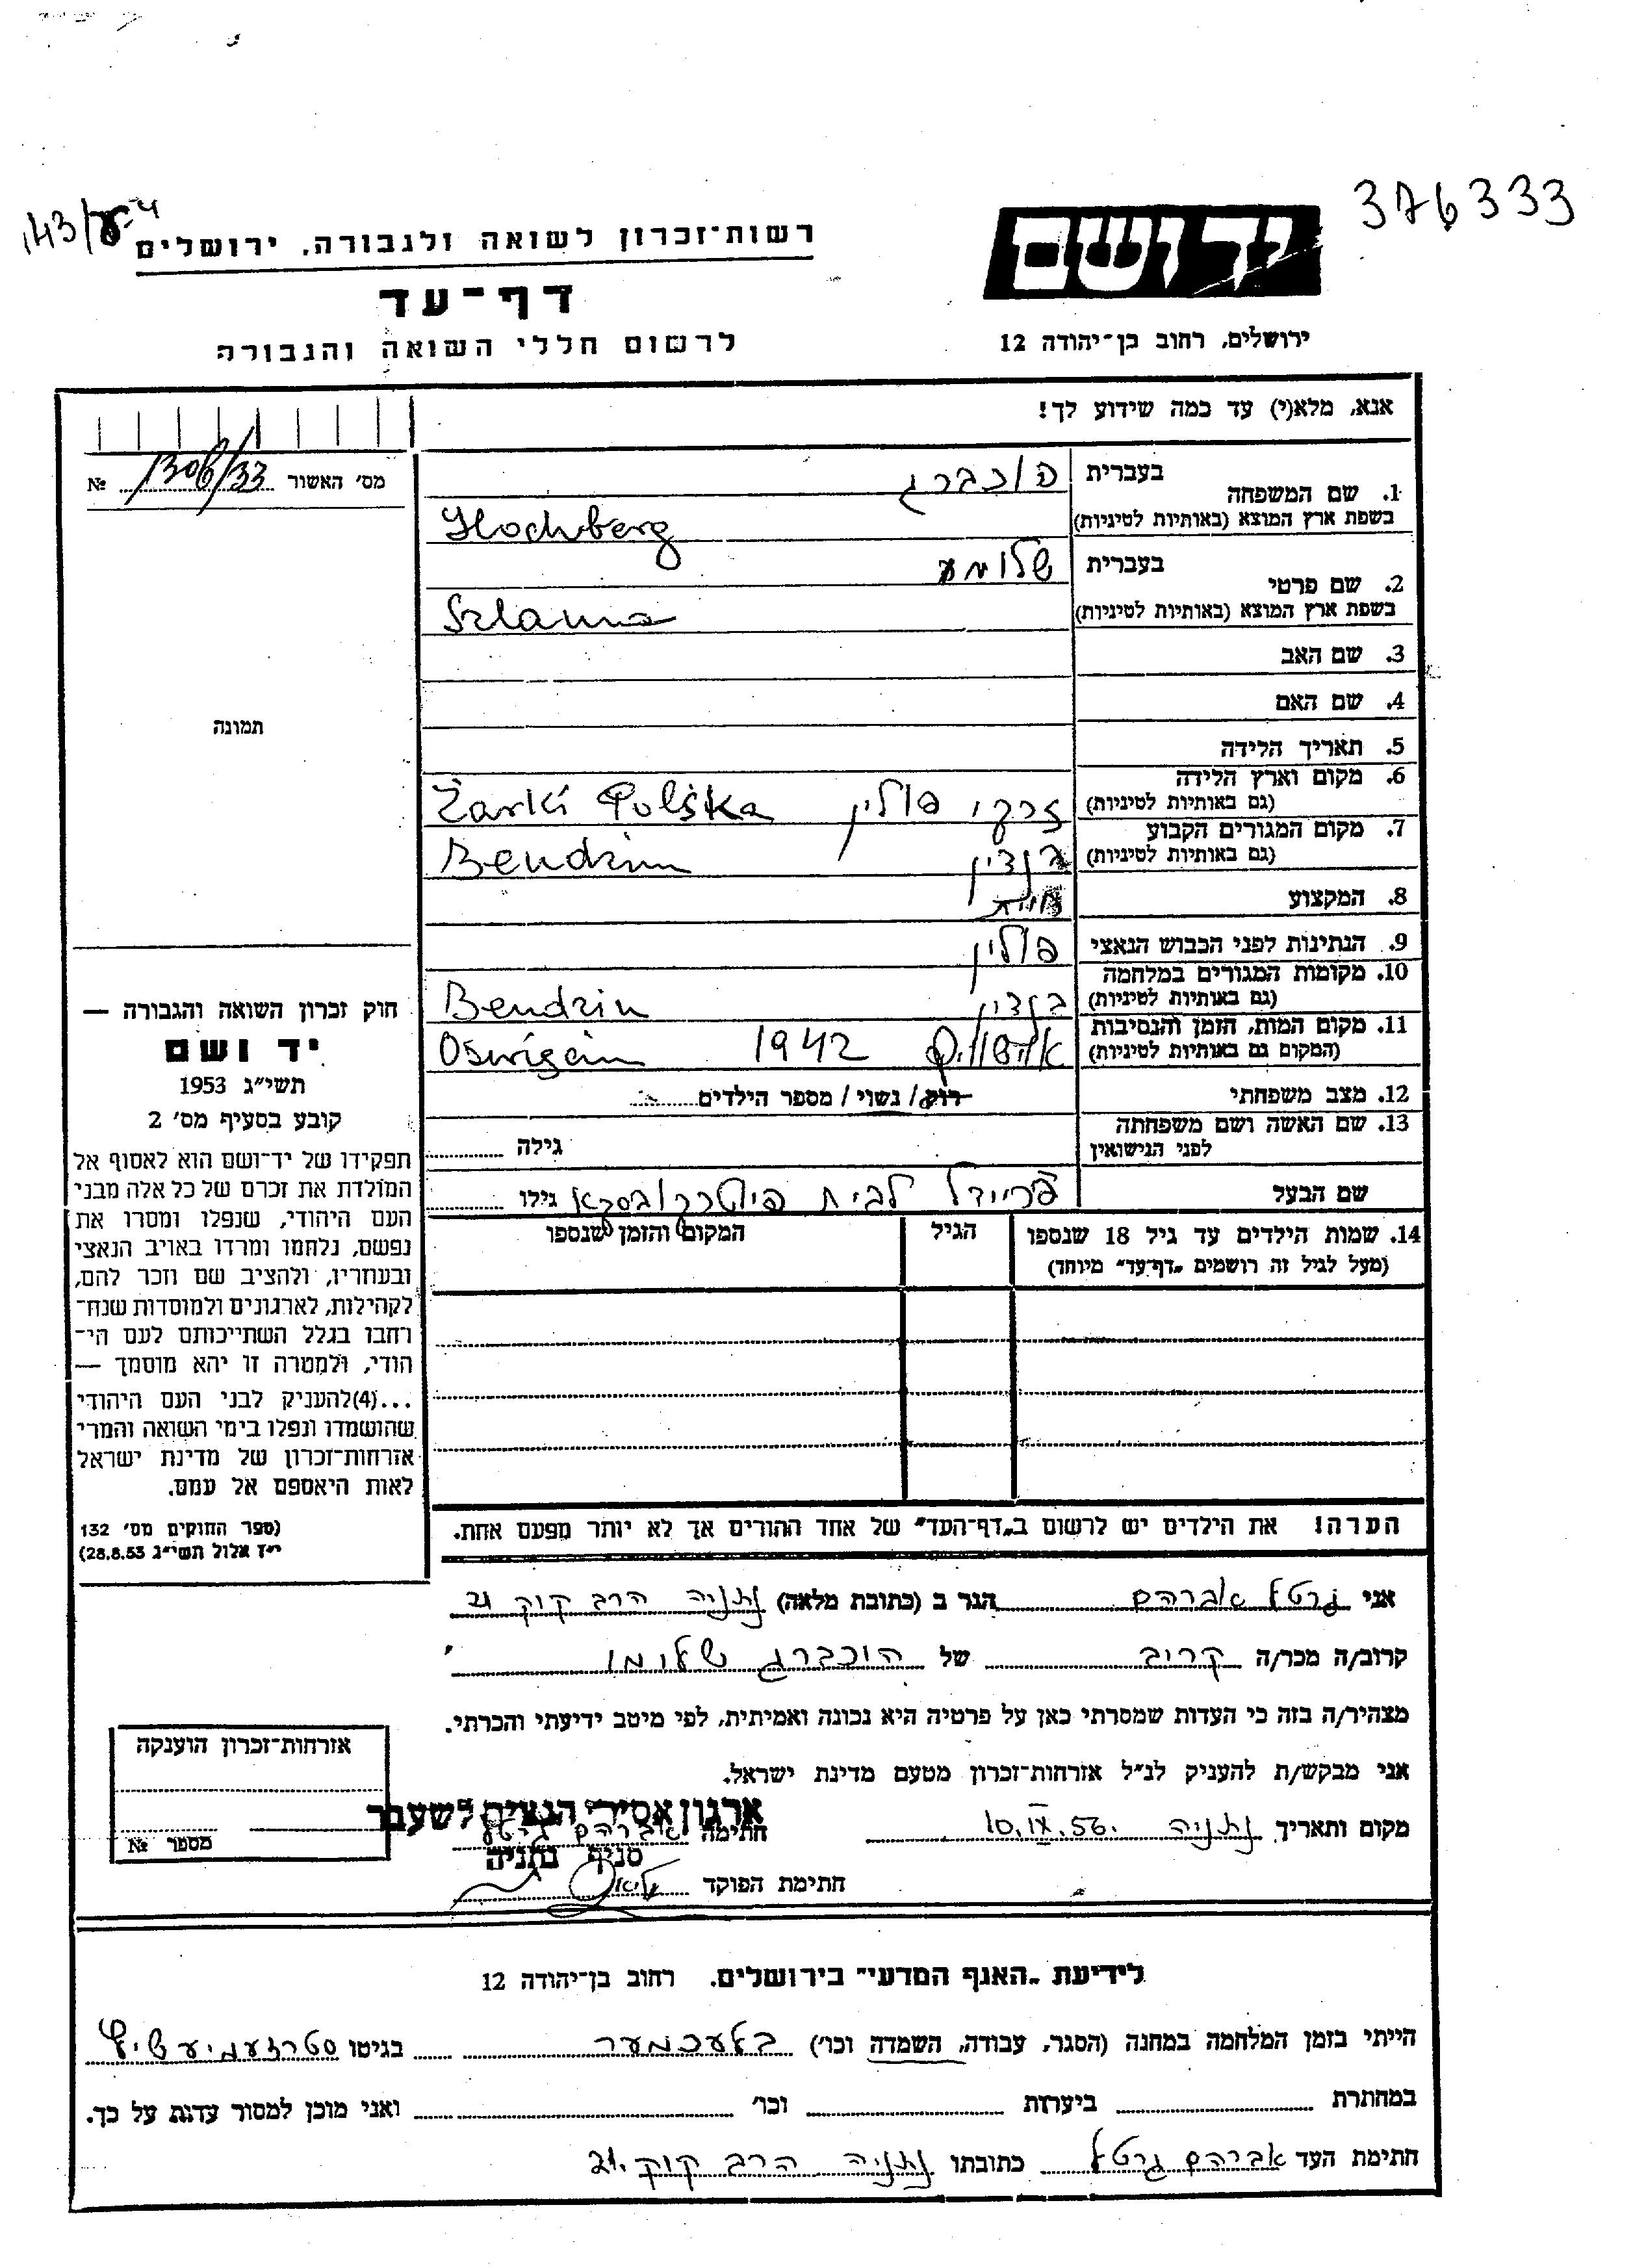 376333
143/
רשות-זכרון לשואה ולגבורה, ירושלים
דף-עד
לרשום חללי השואה והגבורה
יד ושם
ירושלים, רחוב בן-יהודה 12
אנא, מלא(י) עד כמה שידוע לך!
מס' האשור 1306/33 №
1. שם המשפחה
בעברית הוכברג
בשפת ארץ המוצא (באותיות לטיניות) Hochberg
2. שם פרטי
בעברית שלומא
בשפת ארץ המוצא (באותיות לטיניות) Szlama
3. שם האב
4. שם האם
5. תאריך הלידה
6. מקום וארץ הלידה
(גם באותיות לטיניות) זרקי פולין Żarki Polska
7. מקום המגורים הקבוע
(גם באותיות לטיניות) בנדין Bendzin
8. המקצוע
9. הנתינות לפני הכבוש הנאצי פולין
10. מקומות המגורים במלחמה
(גם באותיות לטיניות) בנדין Bendzin
11. מקום המות, הזמן והנסיבות
(המקום גם באותיות לטיניות) 1942
12. מצב משפחתי רוק / נשוי / מספר הילדים
13. שם האשה ושם משפחתה
לפני הנישואין גילה
שם הבעל פריידל לבית פיוטרקובסקא גילו
14. שמות הילדים עד גיל 18 שנספו הגיל המקום והזמן שנספו
(מעל לגיל זה רושמים "דף-עד" מיוחד)
הערה! את הילדים יש לרשום ב"דף-העד" של אחד ההורים אך לא יותר מפעם אחת.
תמונה
חוק זכרון השואה והגבורה —
יד ושם
תשי"ג 1953
קובע בסעיף מס' 2
תפקידו של יד-ושם הוא לאסוף אל
המולדת את זכרם של כל אלה מבני
העם היהודי, שנפלו ומסרו את
נפשם, נלחמו ומרדו באויב הנאצי
ובעוזריו, ולהציב שם וזכר להם,
לקהילות, לארגונים ולמוסדות שנח-
רחבו בגלל השתייכותם לעם הי-
הודי, ולמטרה זו יהא מוסמך —
...(4)להעניק לבני העם היהודי
שהושמדו ונפלו בימי השואה והמרי
אזרחות-זכרון של מדינת ישראל
לאות היאספם אל עמם.
(ספר החוקים מס' 132
י"ז אלול תשי"ג 28.8.53)
אני גרטל אברהם הגר ב (כתובת מלאה) נתניה הרב קוק 21
קרוב/ה מכר/ה קריב של הוכברג שלומו
מצהיר/ה בזה כי העדות שמסרתי כאן על פרטיה היא נכונה ואמיתית, לפי מיטב ידיעתי והכרתי.
אני מבקש/ת להעניק לנ"ל אזרחות-זכרון מטעם מדינת ישראל.
מקום ותאריך נתניה 10.IX.56. חתימה אברהם גרטל
ארגון אסירי הנצים לשעבר
סניף נתניה
חתימת הפוקד
אזרחות-זכרון הוענקה
מספר №
לידיעת "האגף המדעי" בירושלים, רחוב בן-יהודה 12
הייתי בזמן המלחמה במחנה (הסגר, עבודה, השמדה וכו') בלעכמער בגיטו
במחתרת ביערות וכו' ואני מוכן למסור עדות על כך.
חתימת העד אברהם גרטל כתובתו נתניה הרב קוק 21.